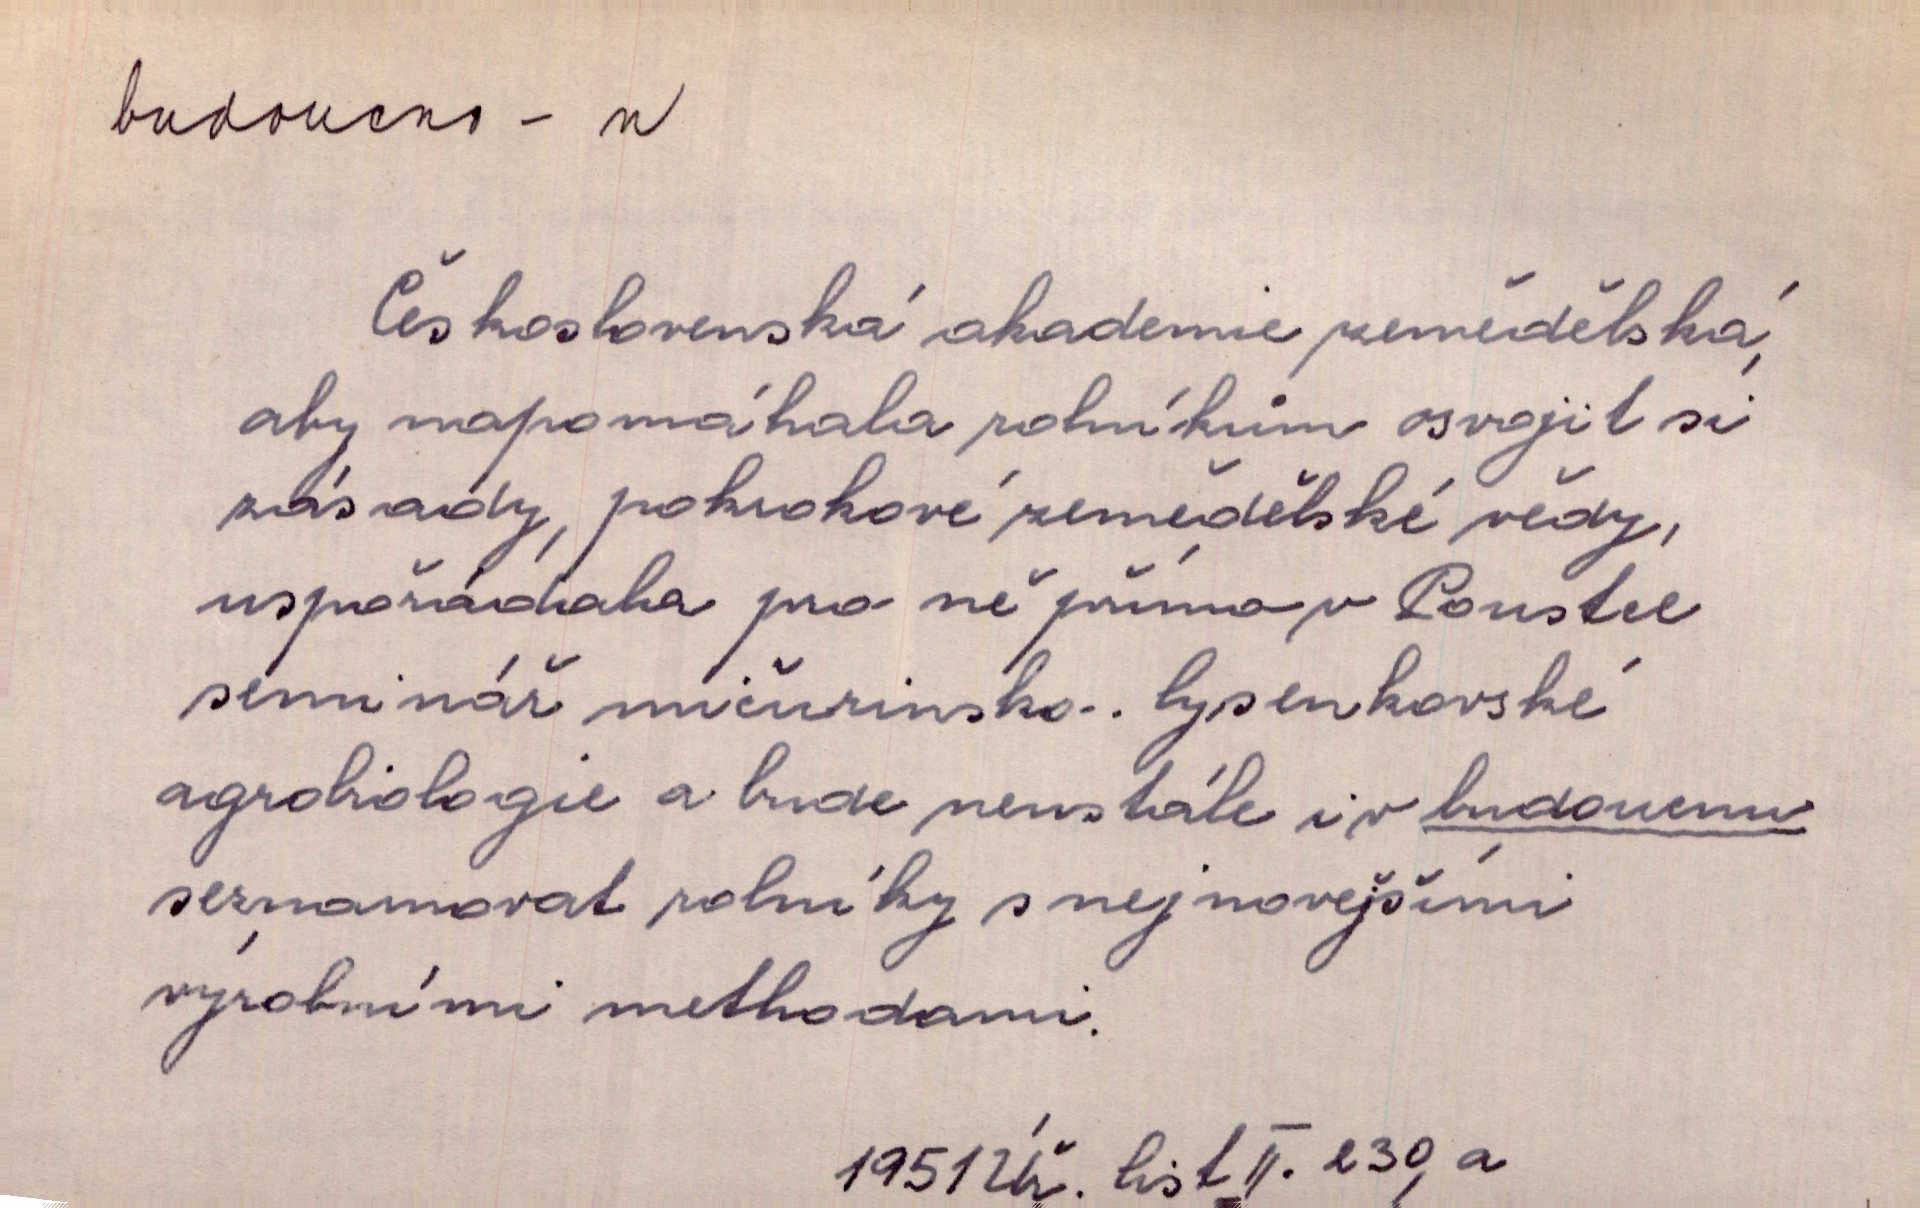 budoucno - v
Československá akademie zemědělská,
aby napomáhala rolníkům osvojit si
zásady, pokrokové zemědělské vědy,
uspořádala pro ně přímo v Poustce
seminář mičurinsko-lysenkovské
agrobiologie a bude neustále i v budoucnu
seznamovat rolníky s nejnovějšími
výrobními methodami.
1951 Úř. list II. 230, a